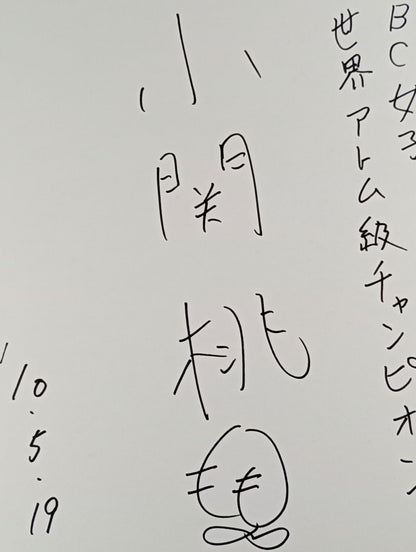 BC女子
世界アトム級チャンピオン
小関桃
もも
10.5.19